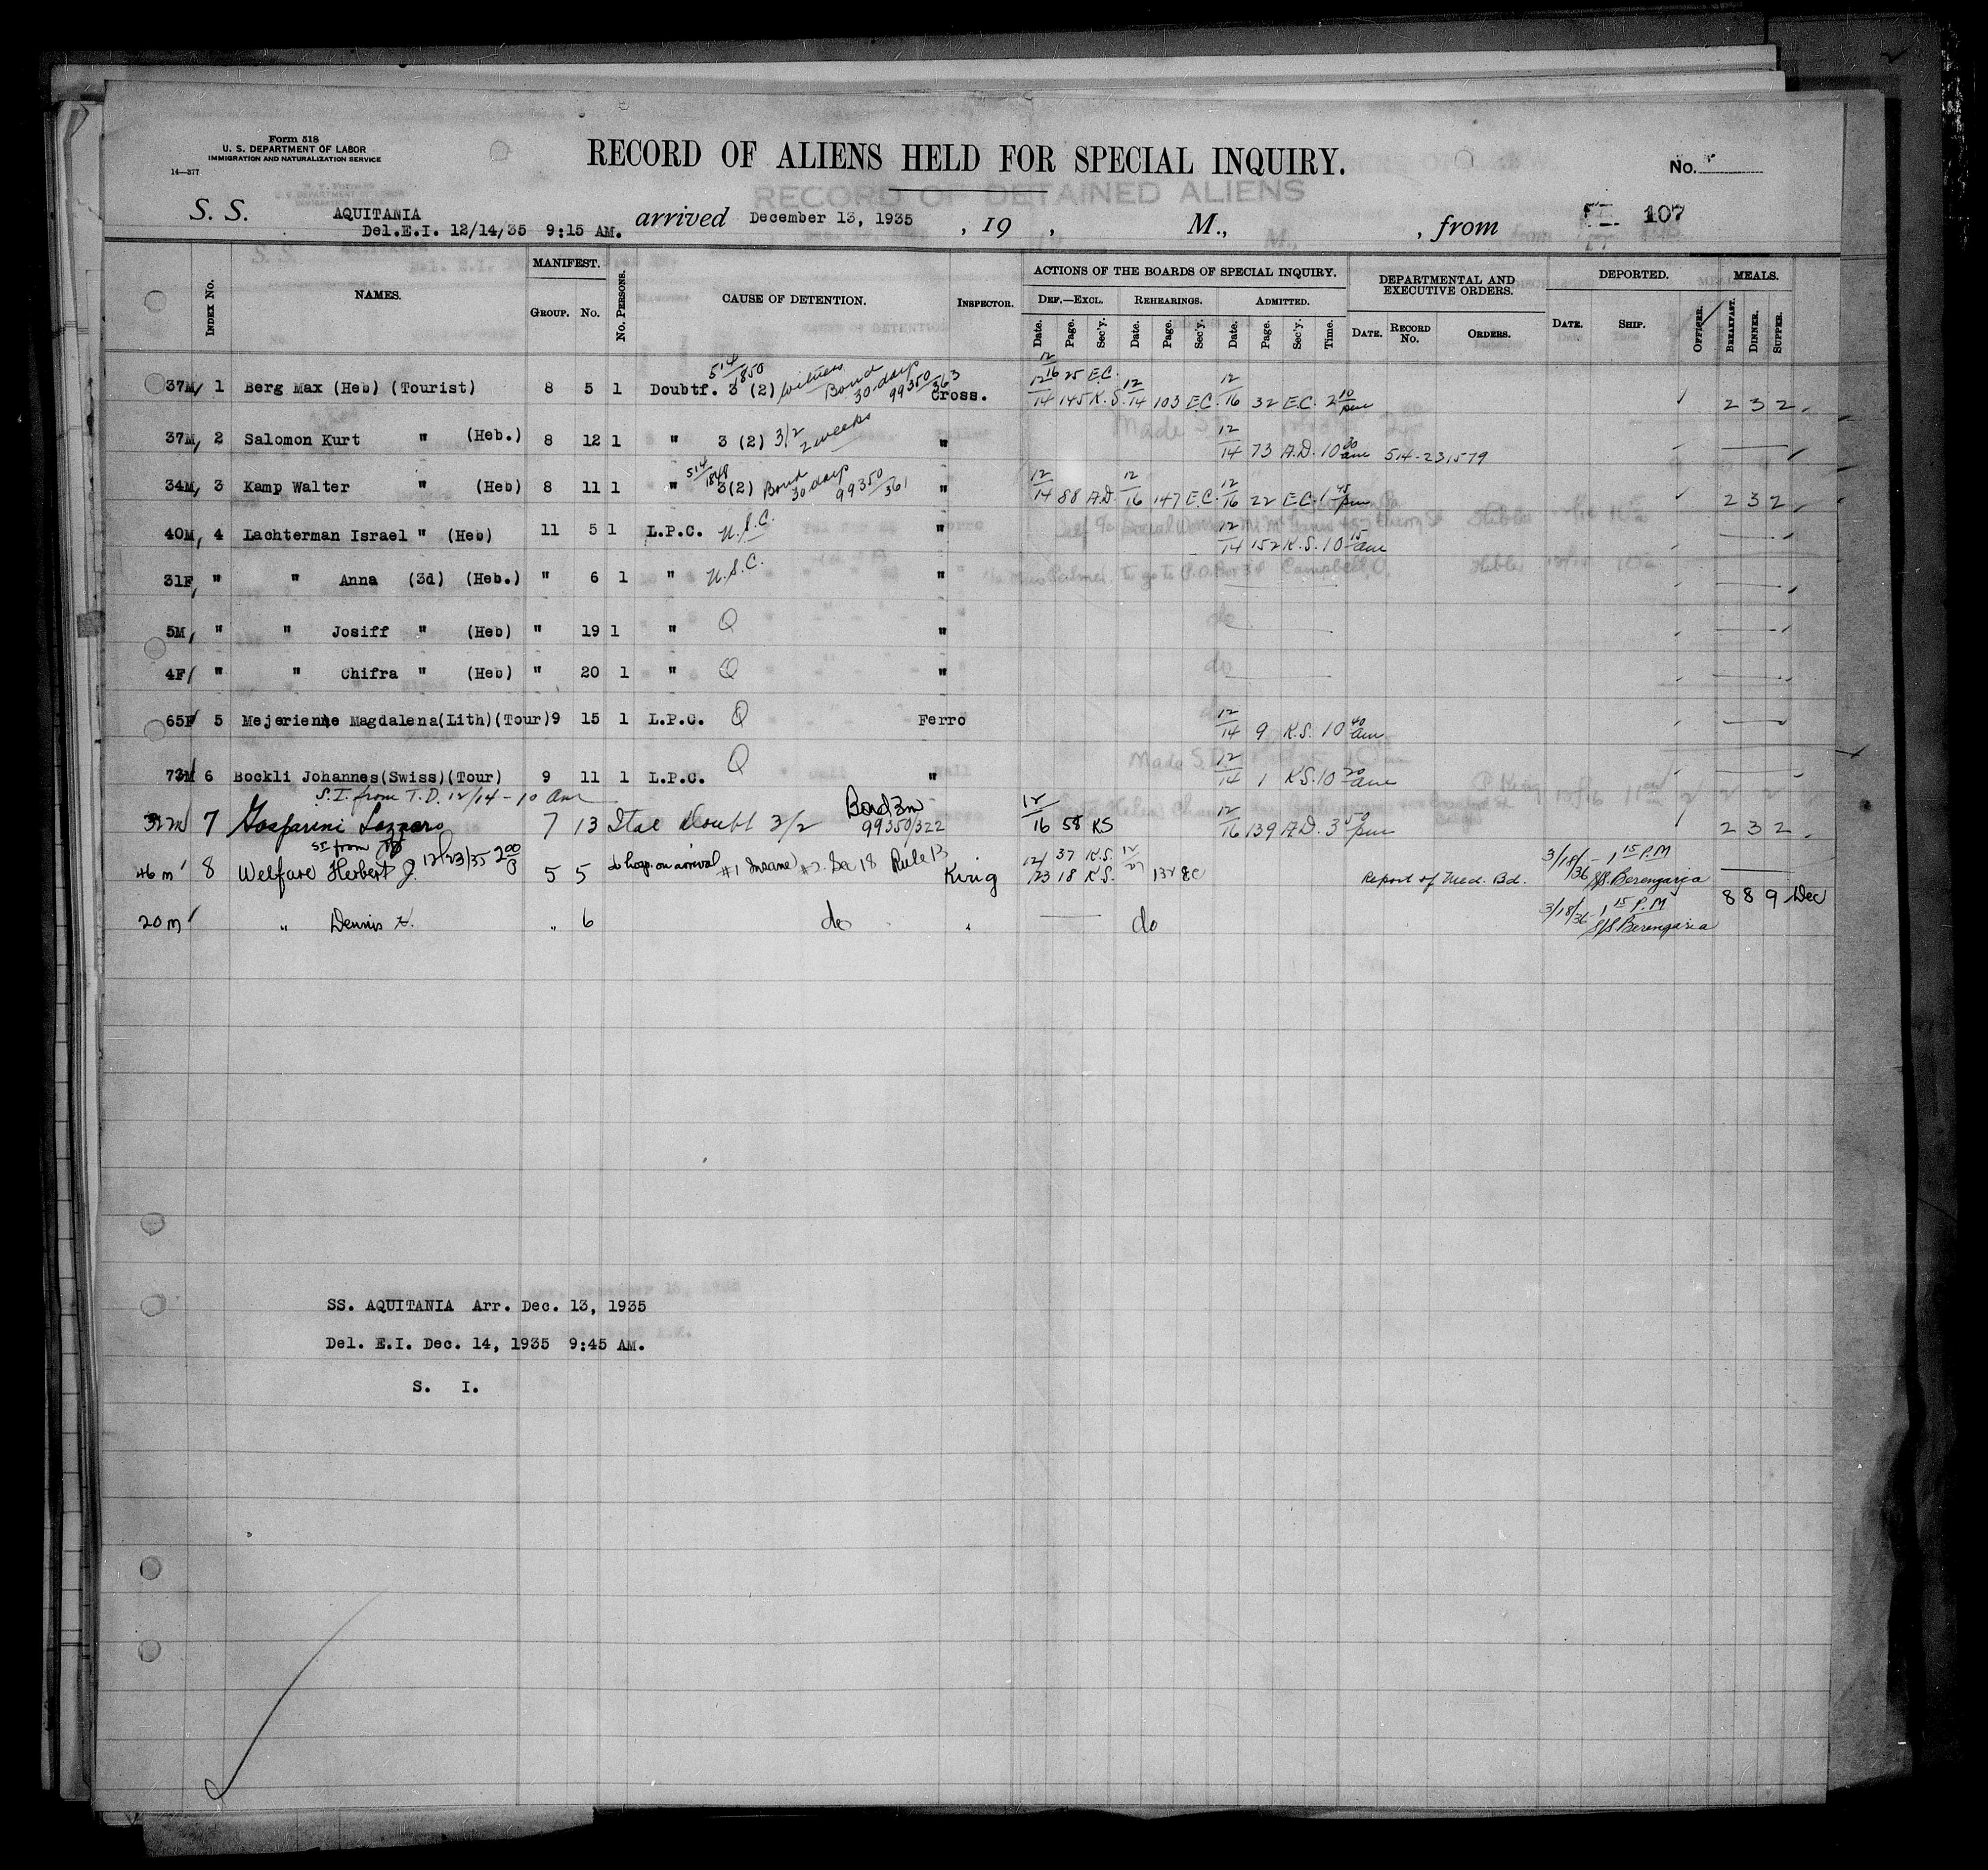 Form 518
U. S. DEPARTMENT OF LABOR
IMMIGRATION AND NATURALIZATION SERVICE
14—377
RECORD OF ALIENS HELD FOR SPECIAL INQUIRY.
No.
RECORD OF DETAINED ALIENS
S. S. AQUITANIA arrived December 13, 1935 , 19 , M., , from 107
Del.E.I. 12/14/35 9:15 AM.
INDEX No. NAMES. MANIFEST. GROUP. No. No. PERSONS. CAUSE OF DETENTION. INSPECTOR. ACTIONS OF THE BOARDS OF SPECIAL INQUIRY. DEPARTMENTAL AND EXECUTIVE ORDERS. DEPORTED. MEALS.
DEF.—EXCL. REHEARINGS. ADMITTED.
Date. Page. Sec'y. Date. Page. Sec'y. Date. Page. Sec'y. Time. DATE. RECORD No. ORDERS. DATE. SHIP. OFFICER. BREAKFAST. DINNER. SUPPER.
514/1850 12/16 25 E.C.
37M 1 Berg Max (Heb) (Tourist) 8 5 1 Doubtf. 3 (2) Witness Bond 30 days 99350/363 Cross. 12/14 145 K.S. 12/14 103 E.C. 12/16 32 E.C. 2 10 pm 2 3 2
37M, 2 Salomon Kurt " (Heb.) 8 12 1 " 3 (2) 3/2 2 weeks " 12/14 73 A.D. 10 30 am 514-231579
514/1848
34M, 3 Kamp Walter " (Heb) 8 11 1 " 3(2) Bond 30 days 99350/361 " 12/14 88 A.D. 12/16 147 E.C. 12/16 22 E.C. 1 45 pm 2 3 2
40M, 4 Lachterman Israel " (Heb) 11 5 1 L.P.C. U.S.C. " 12/14 152 K.S. 10 15 am
31F, " " Anna (3d) (Heb.) " 6 1 " U.S.C. "
5M, " " Josiff " (Heb) " 19 1 " Q "
4F/ " " Chifra " (Heb) " 20 1 " Q "
65F 5 Mejerienne Magdalena(Lith)(Tour)9 15 1 L.P.C. Q Ferro 12/14 9 K.S. 10 40 am
73M 6 Bockli Johannes(Swiss)(Tour) 9 11 1 L.P.C. Q " 12/14 1 K.S. 10 20 am
S.I. from T.D. 12/14 - 10 Am
32m 7 Gasparini Lazzaro 7 13 Ital Doubt 3/2 Bond 3m 99350/322 12/16 58 KS 12/16 139 A.D. 3 50 pm 2 3 2
SI from 12/23/35 2 00
46 m 8 Welfare Herbert J. 5 5 to hosp. on arrival #1 Insane #2. Sec 18 Rule 13 King 12/23 37 K.S. 18 K.S. 12/27 132 EC Report of Med. Bd. 3/18/36 - 1 15 P.M S/S. Berengaria 8 8 9 Dec
20 m " Dennis H. " 6 do " do 3/18/36 - 1 15 P.M S/S Berengaria
SS. AQUITANIA Arr. Dec. 13, 1935
Del. E.I. Dec. 14, 1935 9:45 AM.
S. I.